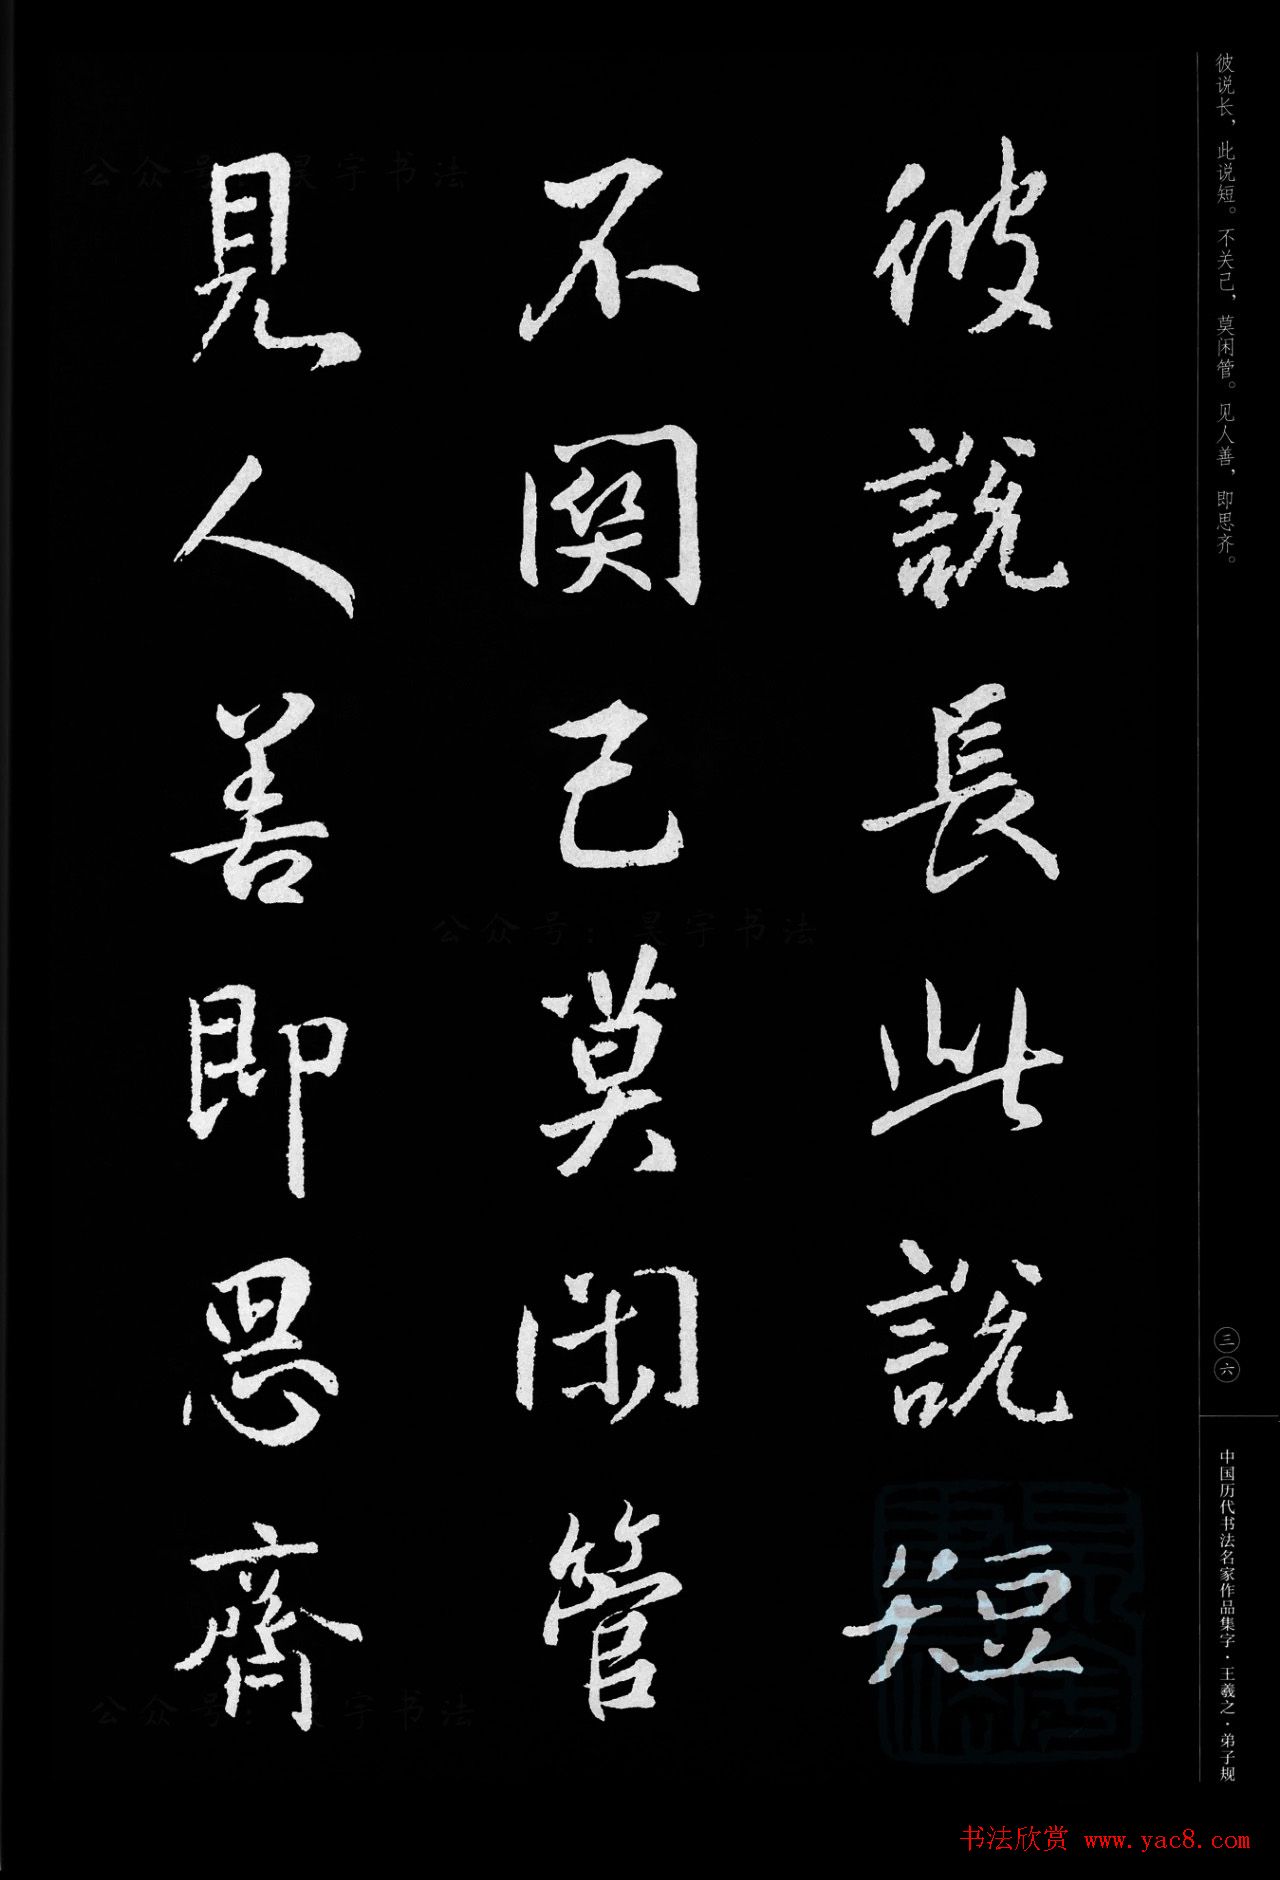 彼说长，此说短。不关己，莫闲管。见人善，即思齐。
彼說長此說短
不関己莫閑管
見人善即思齊
三六
中国历代书法名家作品集字·王羲之·弟子规
公众号：昊宇书法
公众号：昊宇书法
公众号：昊宇书法
书法欣赏 www.yac8.com